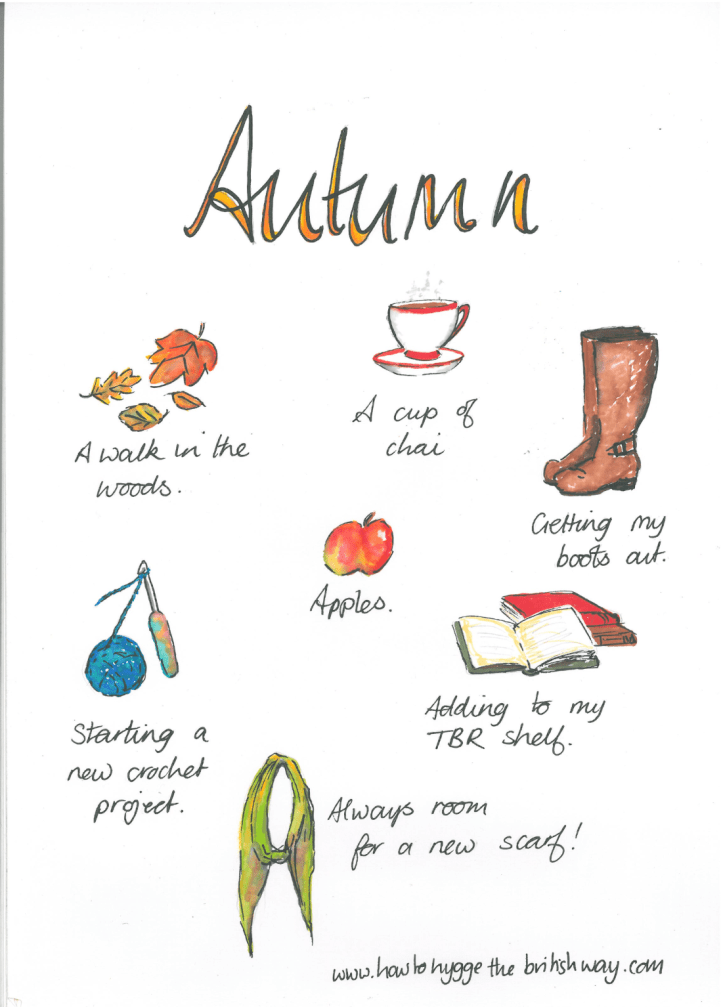 Autumn
A cup of
chai
A walk in the
woods.
Getting my
boots out.
Apples.
Adding to my
TBR shelf.
Starting a
new crochet
project.
Always room
for a new scarf!
www.howtohyggethebritishway.com